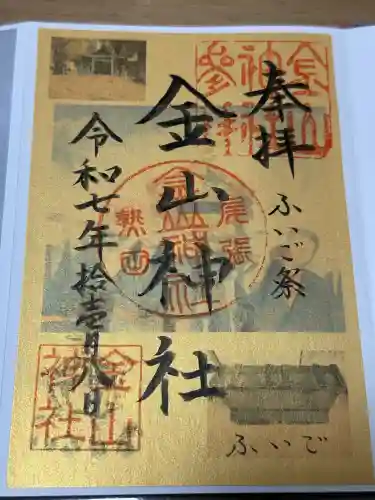 奉拝
ふいご祭
金山神社
令和七年拾壱月八日
尾張
熱田
金山神社
金山神社
ふいご